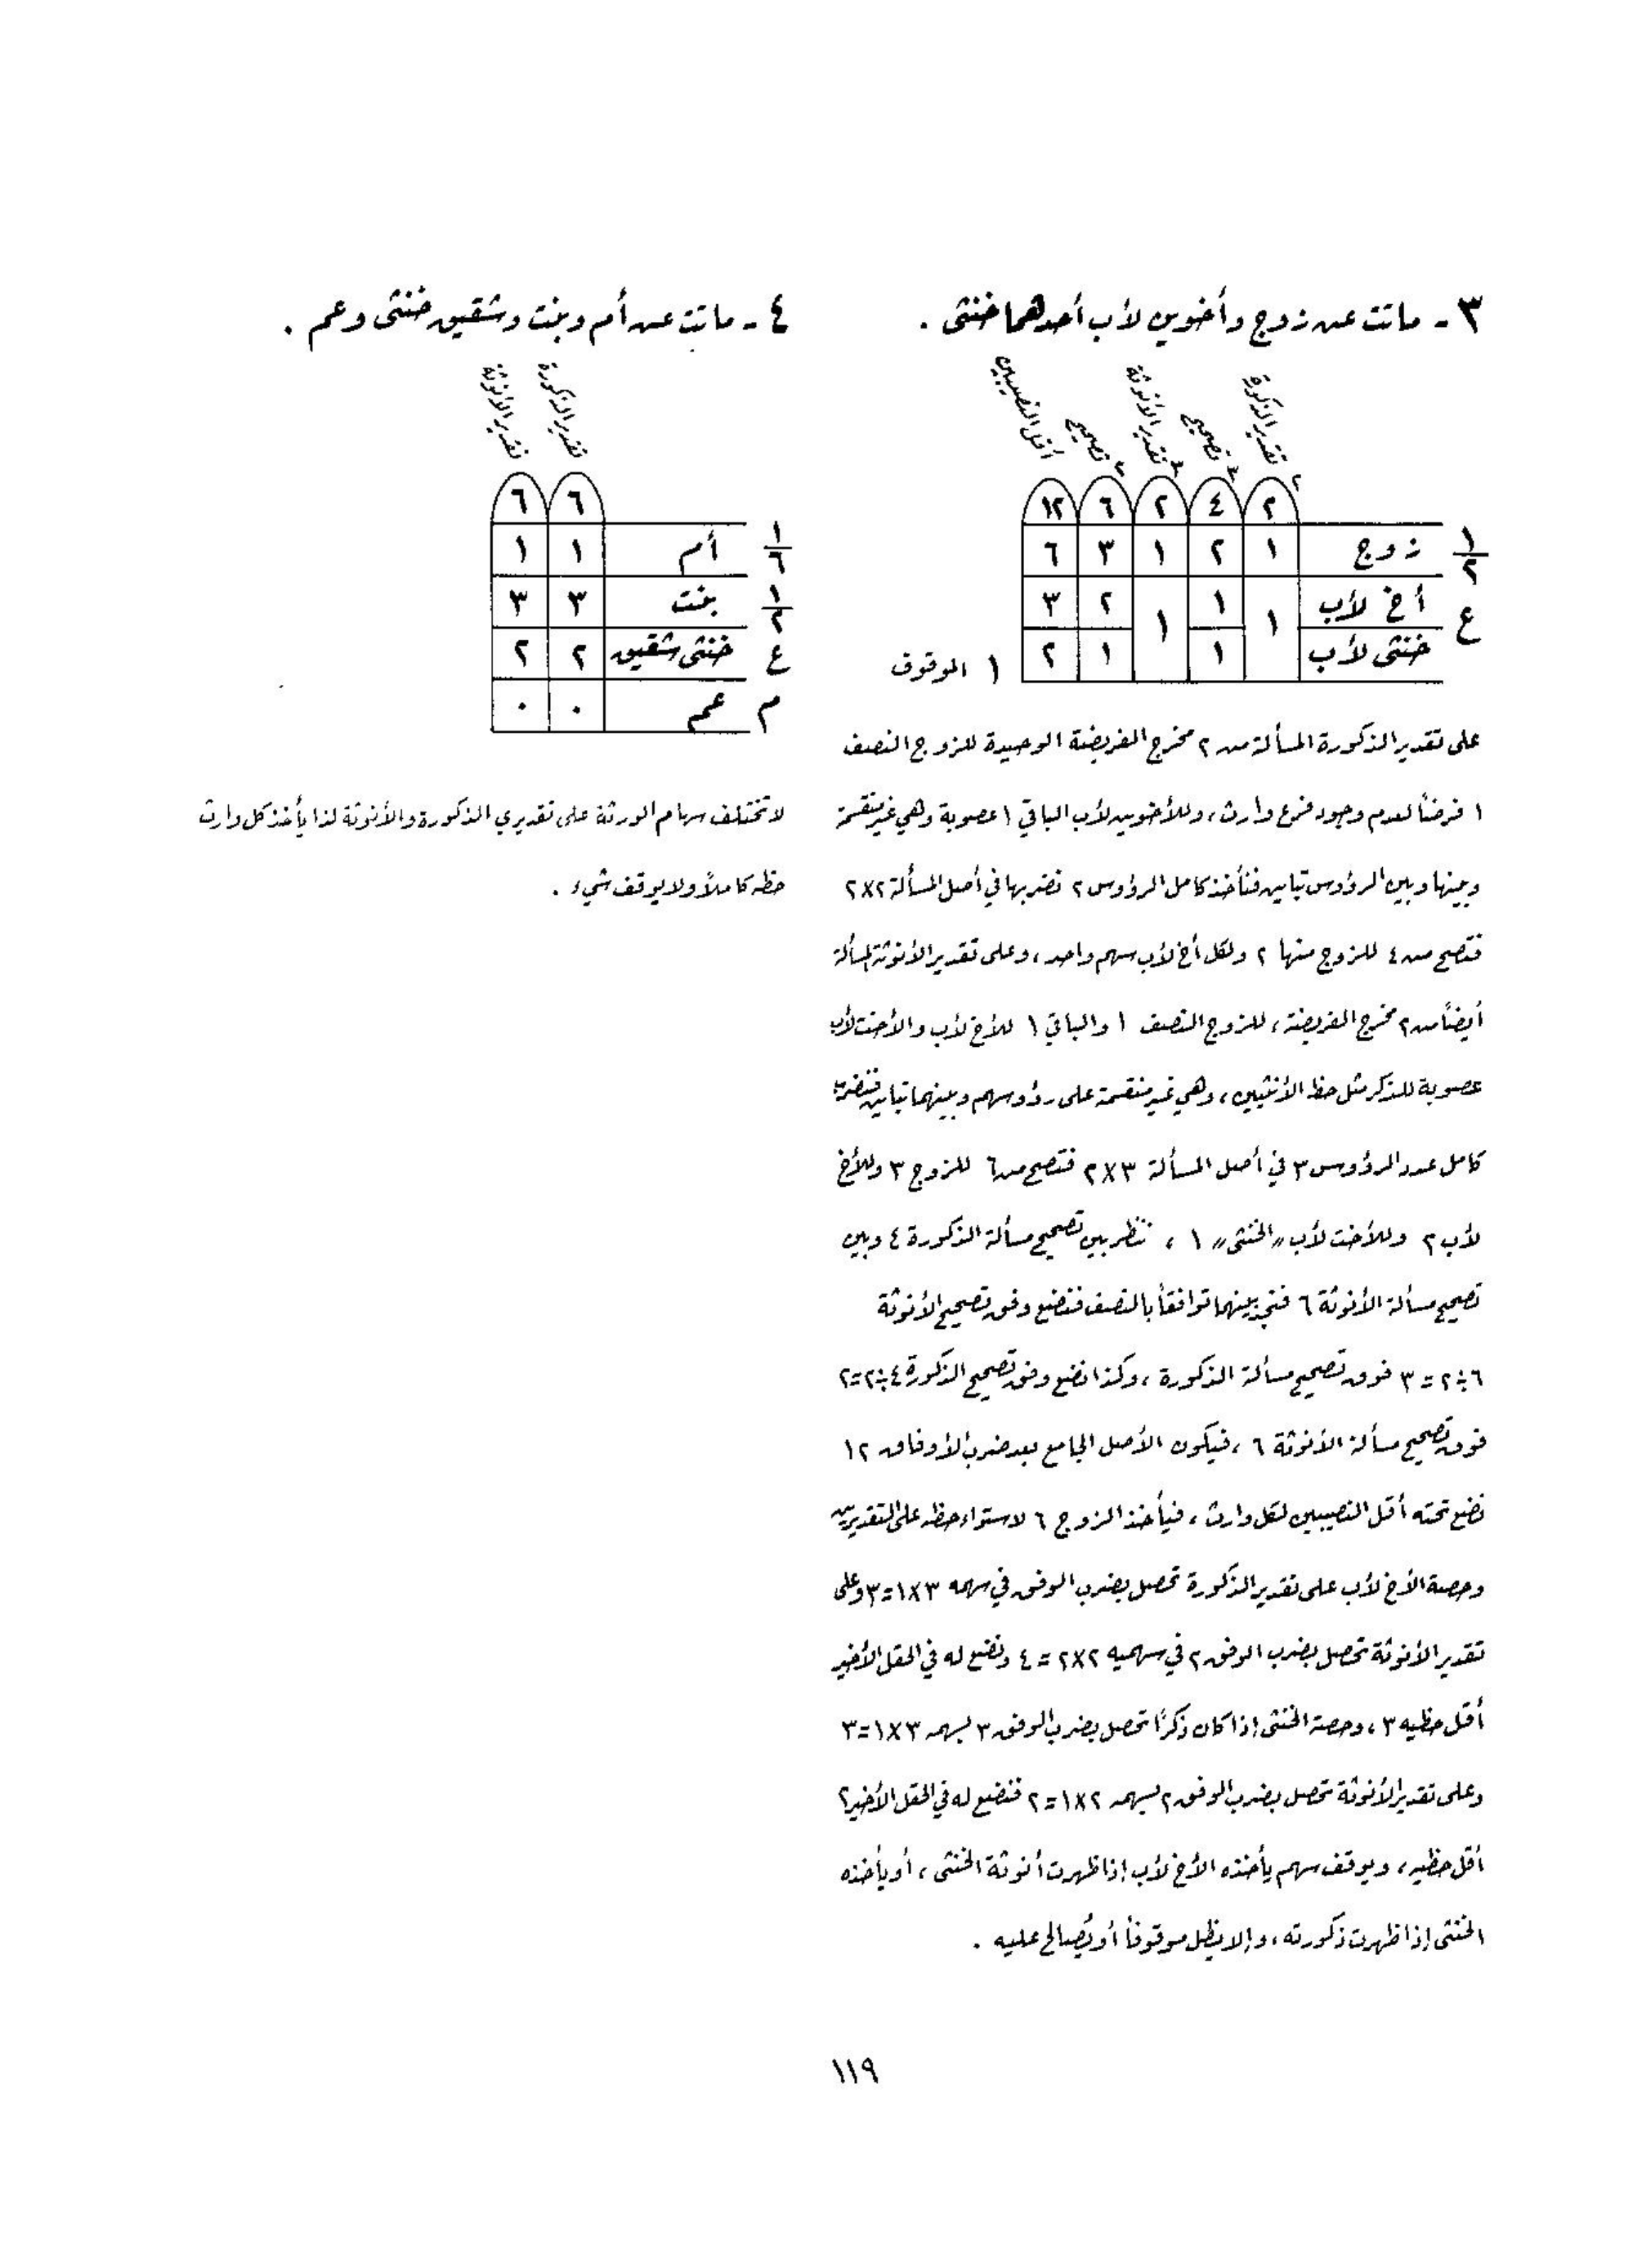 ٣ - ماتت عن زوج وأخوين لأب أحدهما خنثى .
تقدير الذكورة
تصحيح
تقدير الأنوثة
تصحيح
أقل النصيبين
٢ ٣ ٣ ٢
٢ ٤ ٢ ٦ ١٢
١/٢ زوج ١ ٢ ١ ٣ ٦
ع أخ لأب ١ ١ ١ ٢ ٣
خنثى لأب ١ ١ ٢ ١ الموقوف
على تقدير الذكورة المسألة من ٢ مخرج الفريضة الوحيدة للزوج النصف
١ فرضاً لعدم وجود فرع وارث، وللأخوين لأب الباقي ١ عصوبة وهي غير منقسمة
وبينها وبين الرؤوس تباين فنأخذ كامل الرؤوس ٢ نضربها في أصل المسألة ٢×٢
فتصح من ٤ للزوج منها ٢ ولكل أخ لأب سهم واحد، وعلى تقدير الأنوثة المسألة
أيضاً من ٢ مخرج الفريضة، للزوج النصف ١ والباقي ١ للأخ لأب والأخت لأب
عصوبة للذكر مثل حظ الأنثيين، وهي غير منقسمة على رؤوسهم وبينهما تباين فنضرب
كامل عدد الرؤوس ٣ في أصل المسألة ٣×٢ فتصح من ٦ للزوج ٣ وللأخ
لأب ٢ وللأخت لأب «الخنثى» ١ ، ننظر بين تصحيح مسألة الذكورة ٤ وبين
تصحيح مسألة الأنوثة ٦ فنجد بينهما توافقاً بالنصف فنضع وفق تصحيح الأنوثة
٦÷٢=٣ فوق تصحيح مسألة الذكورة، وكذا نضع وفق تصحيح الذكورة ٤÷٢=٢
فوق تصحيح مسألة الأنوثة ٦ ، فيكون الأصل الجامع بعد ضرب الأوفاق ١٢
نضع تحته أقل النصيبين لكل وارث، فيأخذ الزوج ٦ لاستواء حظه على التقديرين
وحصة الأخ لأب على تقدير الذكورة تحصل بضرب الوفق في سهمه ٣×١=٣ وعلى
تقدير الأنوثة تحصل بضرب الوفق ٢ في سهميه ٢×٢=٤ ونضع له في الحقل الأخير
أقل حظيه ٣، وحصة الخنثى إذا كان ذكراً تحصل بضرب الوفق ٣ بسهمه ٣×١=٣
وعلى تقدير الأنوثة تحصل بضرب الوفق ٢ بسهمه ٢×١=٢ فنضع له في الحقل الأخير ٢
أقل حظيه، ويوقف سهم يأخذه الأخ لأب إذا ظهرت أنوثة الخنثى، أو يأخذه
الخنثى إذا ظهرت ذكورته، وإلا يظل موقوفاً أو يُصالح عليه .
٤ - ماتت عن أم وبنت وشقيق خنثى وعم .
تقدير الذكورة
تقدير الأنوثة
٦ ٦
١/٦ أم ١ ١
١/٢ بنت ٣ ٣
ع خنثى شقيق ٢ ٢
م عم ٠ ٠
لا تختلف سهام الورثة على تقديري الذكورة والأنوثة لذا يأخذ كل وارث
حظه كاملاً ولا يوقف شيء .
١١٩